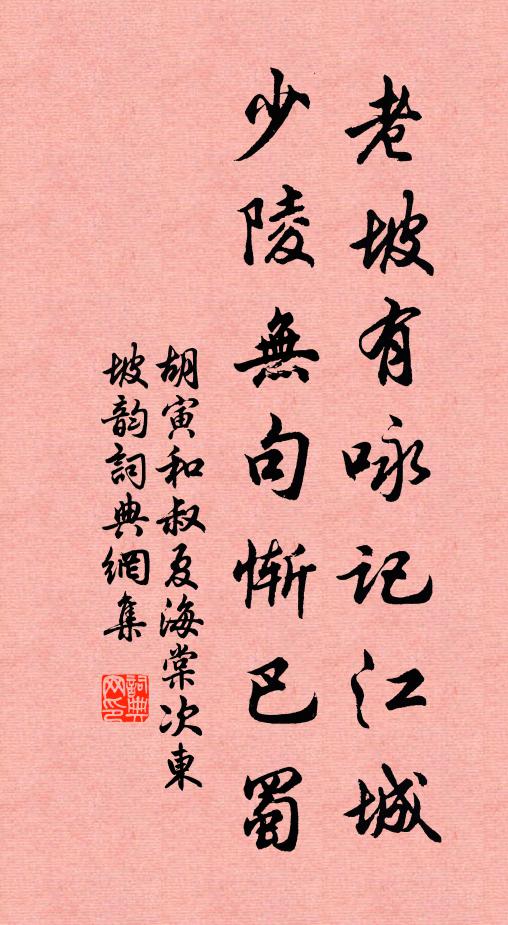 老坡有咏记江城
少陵無句慚巴蜀
胡寅和叔夏海棠次東
坡韵詞典網集
詞典網印